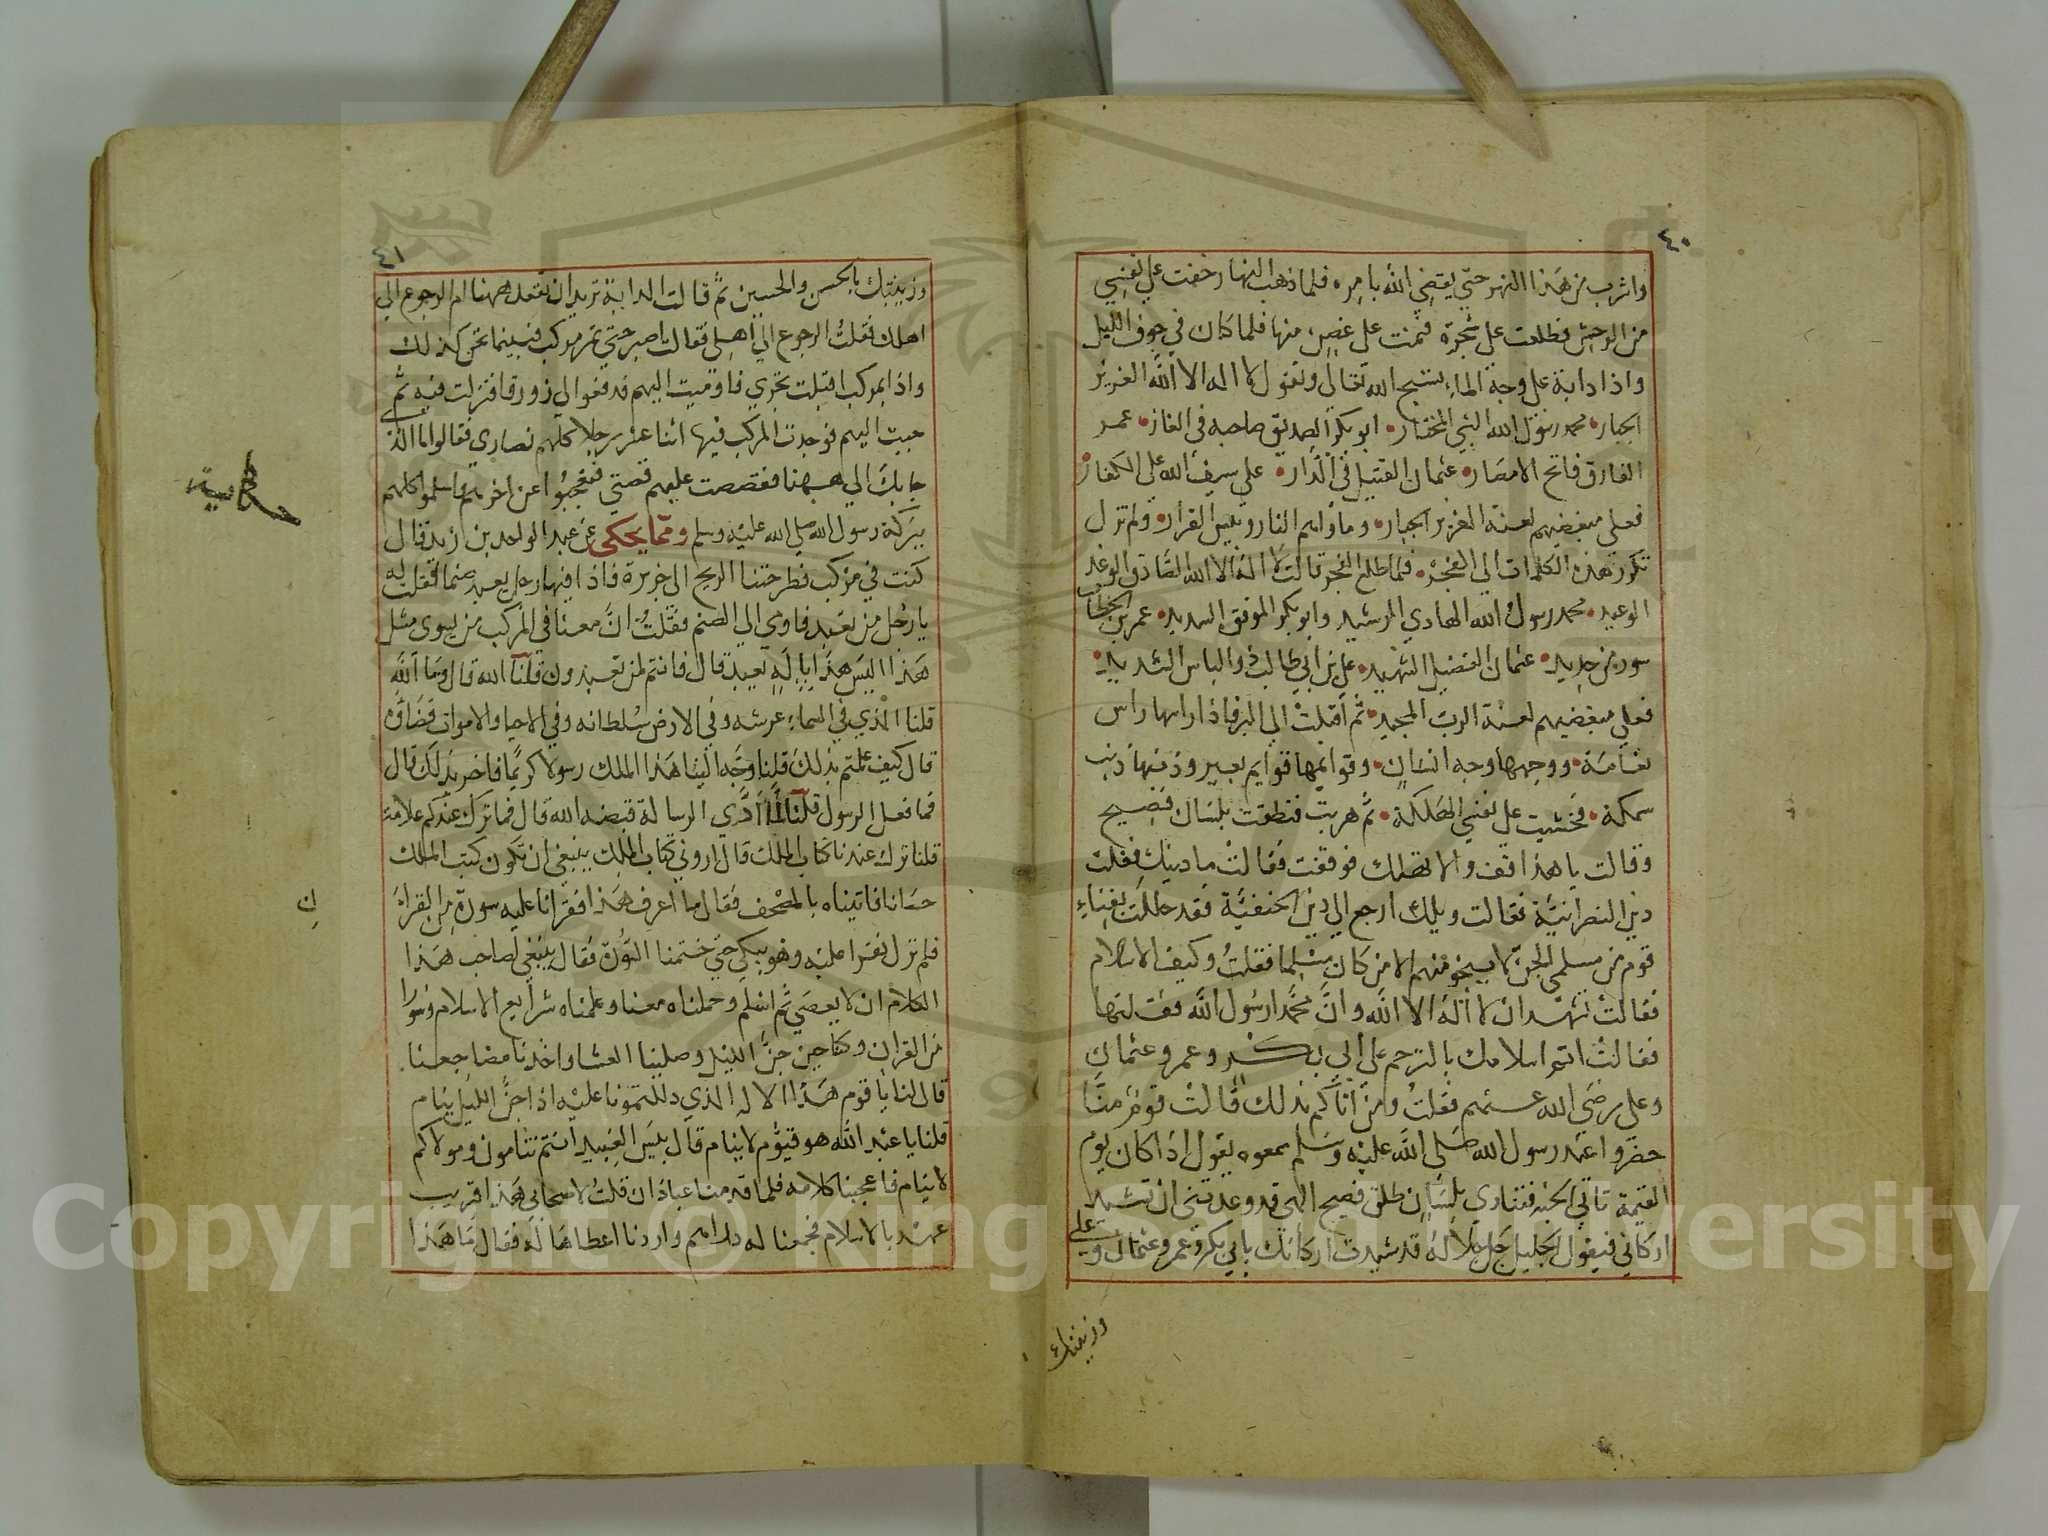 ٤٠
واشرب من هذا النهر حتى يقضي الله بامره فلما ذهب النهار خفت على نفسي
من الوحش فطلعت على شجرة فنمت على غصن منها فلما كان في جوف الليل
واذا دابة على وجه الماء تسبح الله تعالى وتقول لا اله الا الله العزيز
الجبار محمد رسول الله النبي المختار ابو بكر الصديق صاحبه في الغار عمر
الفارق فاتح الامصار عثمان القتيل في الدار علي سيف الله على الكفار
فعلى مبغضيهم لعنة العزيز الجبار وماواهم النار وبيس القرار ولم تزل
تكرر هذه الكلمات الى الفجر فلما طلع الفجر قالت لا اله الا الله الصادق الوعد
الوعيد محمد رسول الله الهادي الرشيد وابو بكر الموفق السديد عمر بن الخطاب
سور من حديد عثمان الفضيل الشهيد علي بن ابي طالب ذو الباس الشديد
فعلى مبغضيهم لعنة الرب المجيد ثم اقبلت الى البر فاذا راسها راس
نعامة ووجهها وجه انسان وقوايمها قوايم بعير وذنبها ذنب
سمكة فخشيت على نفسي الهلكة ثم هربت فنطقت بلسان فصيح
وقالت يا هذا قف والا تهلك فوقفت فقالت ما دينك فقلت
دين النصرانية فقالت ويلك ارجع الى دين الحنفية فقد حللت بفناء
قوم من مسلمي الجن لا ينجو منهم الا من كان مسلما فقلت وكيف الاسلام
فقالت تشهد ان لا اله الا الله وان محمدا رسول الله فقلتها
فقالت اتم اسلامك بالترحم على ابي بكر وعمر وعثمان
وعلي رضي الله عنهم فقلت ومن اتاكم بذلك قالت قوم منا
حضروا عند رسول الله صلى الله عليه وسلم سمعوه يقول اذا كان يوم
القيمة تاتي الجنة فتنادي بلسان طلق فصيح الهي قد وعدتني ان تشيد
اركاني فيقول الجليل جل جلاله قد شيدت اركانك بابي بكر وعمر وعثمان وعلي
وزينتك
٤١
وزينتك بالحسن والحسين ثم قالت الدابة تريد ان تقعد ههنا ام الرجوع الى
اهلك فقلت الرجوع الى اهلي فقالت اصبر حتى تمر مركب فبينما نحن كذلك
واذا بمركب اقبلت تجري فاوميت اليهم فدفعوا الي زورقا فنزلت فيه ثم
جيت اليهم فوجدت المركب فيها اثنا عشر رجلا كلهم نصارى فقالوا ما الذي
جابك الى ههنا فقصصت عليهم قصتي فتعجبوا عن اخرهم واسلموا كلهم
ببركة رسول الله صلى الله عليه وسلم ومما يحكى عن عبد الواحد بن زيد قال
كنت في مركب فطرحتنا الريح الى جزيرة فاذا فيها رجل يعبد صنما فقلت له
يا رجل من تعبد فاومى الى الصنم فقلت ان معنا في المركب من يسوى مثل
هذا اليس هذا باله يعبد قال فانتم لمن تعبدون قلنا الله قال وما الله
قلنا الذي في السماء عرشه وفي الارض سلطانه وفي الاحيا والاموات قضاؤه
قال كيف علمتم بذلك قلنا وجه الينا هذا الملك رسولا كريما فاخبر بذلك قال
فما فعل الرسول قلنا لما ادى الرسالة قبضه الله قال فما ترك عندكم علامة
قلنا ترك عندنا كتاب الملك قال اروني كتاب الملك ينبغي ان تكون كتب الملك
حسانا فاتيناه بالمصحف فقال ما اعرف هذا فقرانا عليه سورة من القران
فلم نزل نقرا عليه وهو يبكي حتى ختمنا السورة فقال ينبغي لصاحب هذا
الكلام ان لا يعصى ثم اسلم وحملناه معنا وعلمناه شرايع الاسلام وسورا
من القران وكنا حين جن الليل وصلينا العشا واخذنا مضاجعنا
قال لنا يا قوم هذا الاله الذي دللتمونا عليه اذا جن الليل ينام
قلنا يا عبد الله هو قيوم لا ينام قال بيس العبيد انتم تنامون ومولاكم
لا ينام فاعجبنا كلامه فلما قدمنا عبادان قلت لاصحابي هذا قريب
عهد بالاسلام فجمعنا له دراهم واردنا اعطاها له فقال ما هذا
حكاية
Copyright © King Saud University